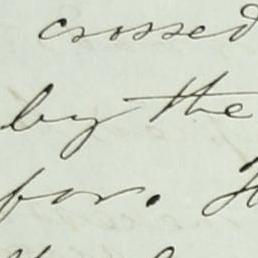 crossed
by the
for.